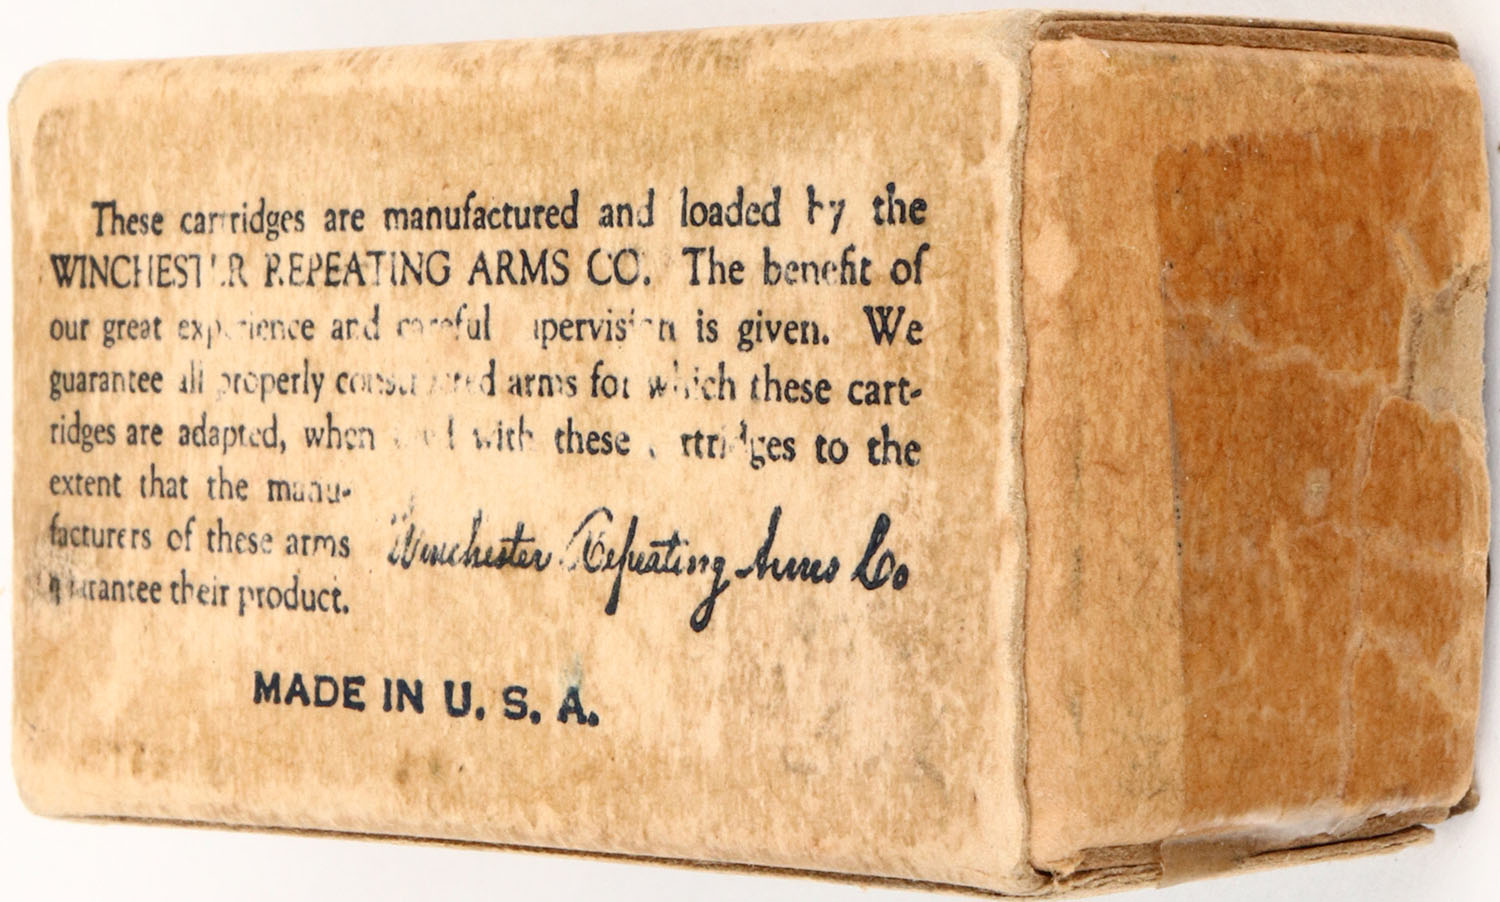 These cartridges are manufactured and loaded by the
WINCHESTER REPEATING ARMS CO. The benefit of
our great experience and careful supervision is given. We
guarantee all properly constructed arms for which these cart-
ridges are adapted, when used with these cartridges to the
extent that the manu-
facturers of these arms
guarantee their product.
Winchester Repeating Arms Co
MADE IN U. S. A.